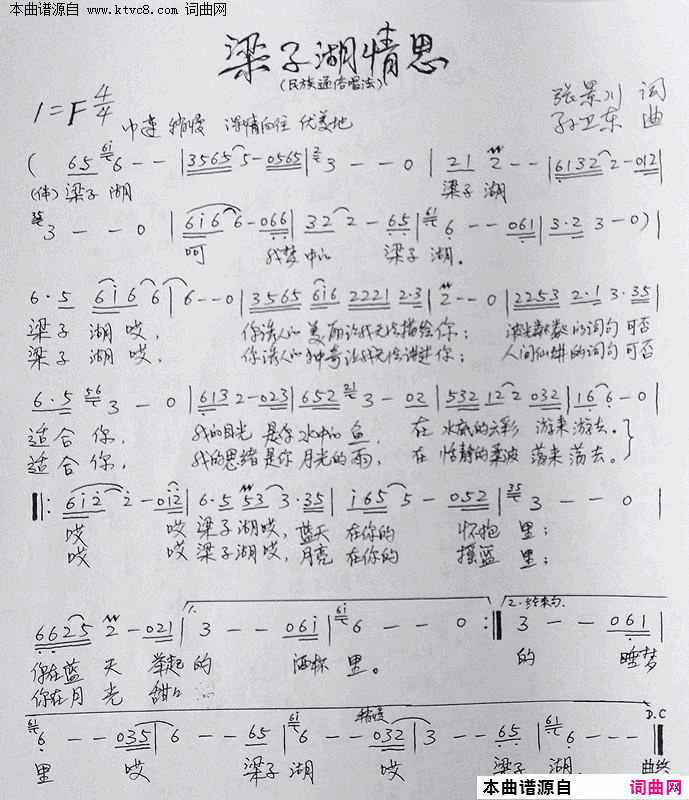 本曲谱源自 www.ktvc8.com 词曲网
梁子湖情思
(民族通俗唱法)
1=F 4/4
中速 稍慢 深情向往 优美地
张景川 词
孙卫东 曲
( 65 6i 6 - - | 3565 5 - 0565 | 2 3 - - 0 | 21 2 - - | 6132 2 - 012 |
(伴) 梁子湖 梁子湖
3 - - 0 | 6i6 6 - 066 | 32 2 - 65 | 61 6 - - 061 | 3·2 3 - 0) |
呵 我梦中的 梁子湖.
6·5 6i6 6 | 6 - - 0 | 3565 6i6 2221 2·3 | 2 - - 0 | 2253 2·1 3·35 |
梁子湖哎, 你诱人的美丽让我无法描绘你; 的词句可否
梁子湖哎, 你诱人的神奇让我无法 你; 人间仙 的词句可否
6·5 56 3 - 0 | 6132 2 - 023 | 652 3 - 02 | 532 12 2 032 | 16 6 - 0 |
适合你, 我的目光是你水中的鱼, 在水底的 游来游去.
适合你, 我的思绪是你月光的雨, 在恬静的柔波荡来荡去。
‖: 6i2 2 - 0i2 | 6·5 53 3·35 | i65 5 - 052 | 35 3 - - 0 |
哎 哎梁子湖哎, 蓝天在你的怀抱里;
哎 哎梁子湖哎, 月亮在你的摇篮里;
1. 2·结束句.
6625 2 - 021 | 3 - - 06i | 6i 6 - - 0 :‖ 3 - - 061 |
你在蓝天举起的 酒杯里。 的 睡梦
你在月光甜
稍慢 D.C
61 6 - - 035 | 6 - - 65 | 6i 6 - - 032 | 3 - - 65 | 61 6 - - - ‖
里 哎 梁子湖 哎 梁子湖. 曲终
本曲谱源自 词曲网